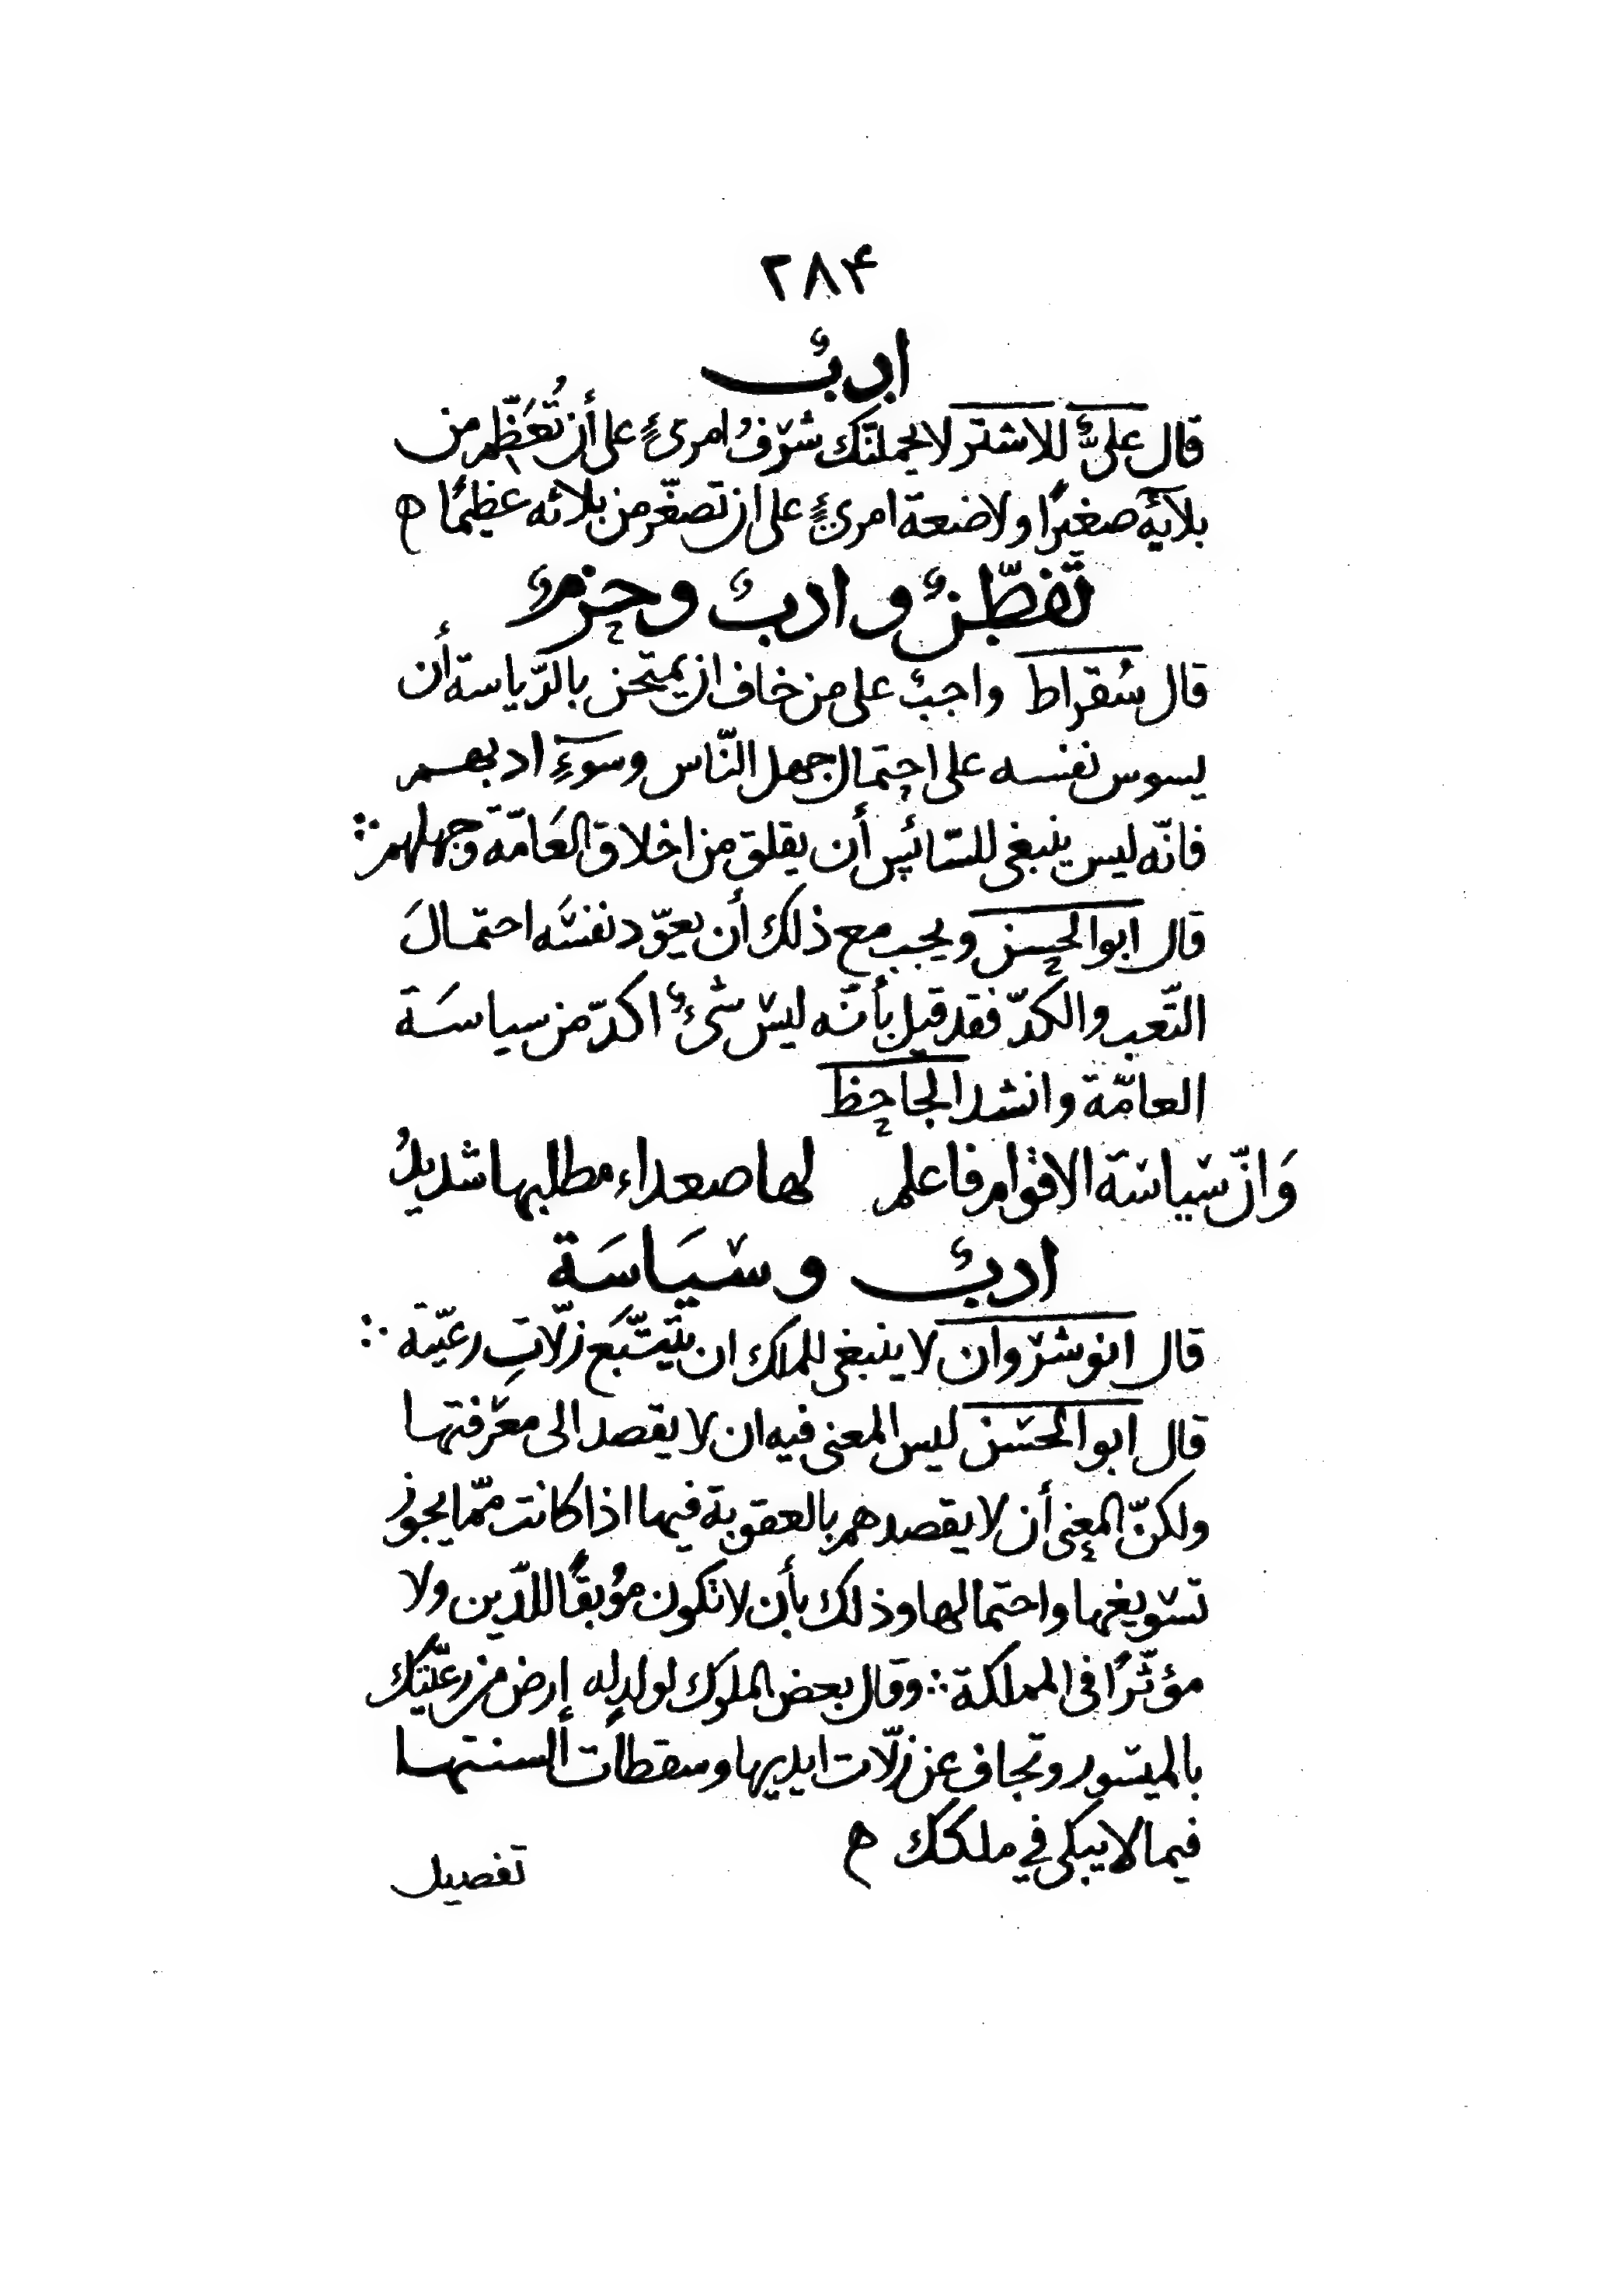 ٢٨۴
ادبٌ
قال علىٌّ للاشتر لا يحملنّك شرفُ امرئٍ على أن تُعَظّم من
بلايهٔ صغيرًا ولا ضعة امرئٍ على ان تصغّر من بلائه عظيمًا ه
تفطّنٌ و ادبٌ وحزمٌ
قال سُقراط واجبٌ على من خاف ان يمتحن بالرّياسة أن
يسوس نفسه على احتمال جهل النّاس وسوٓءِ ادبهم
فانّه ليس ينبغى للسّائس أن يقلق من اخلاق العَامّة وجهلهم ؞
قال ابوالحسن ويجب مع ذلك أن يعوّد نفسَه احتمالَ
التّعب والكدّ فقد قيل بأنّه ليس شئٌ اكدّ من سياسَة
العامّة وانشد الجاحظ
وَانّ سياسَة الاقوام فاعلم لها صعداء مطلبها شديدُ
ادبٌ وسيَاسَة
قال انوشروان لا ينبغى للملك ان يتتبّع زلّاتِ رعيّته ؞
قال ابوالحسن ليس المعنى فيه ان لا يقصد الى معرفتها
ولكنّ المعنى أن لا يقصدهم بالعقوبة فيها اذا كانت ممّا يجوز
تسويغها واحتمالها وذلك بأن لا تكون مؤبقًا للدّين ولا
مؤثّرًا فى المملكة ؞ وقال بعض الملوك لولدٍ له إرض من رعيّتك
بالميسور وتجاف عن زلّات ايديها وسقطات ألسنتها
فيما لا يبكى في ملكك ه
تفصيل